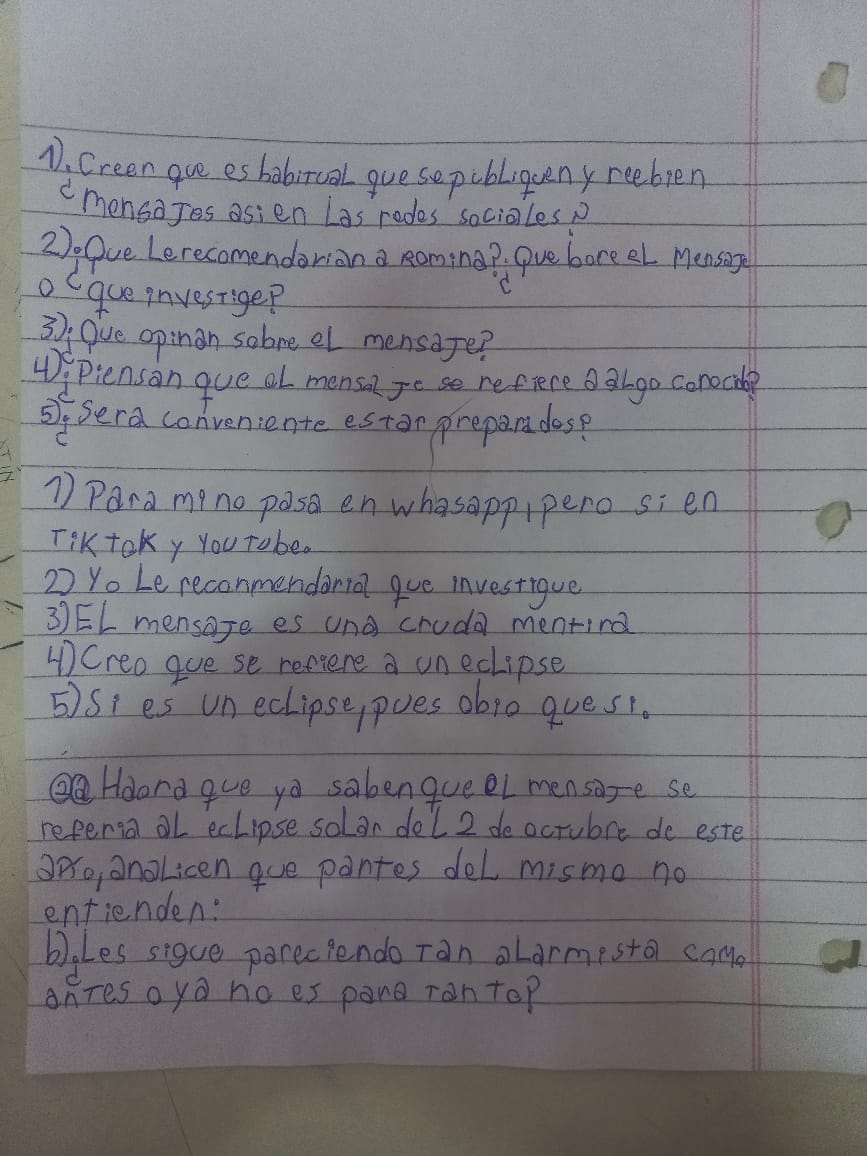 1)¿Creen que es habitual que se publiquen y reebien
mensajes asi en las redes sociales?
2)¿Que le recomendarian a Romina? ¿Que bore el mensaje
o ¿que investige?
3)¿Que opinan sobre el mensaje?
4)¿Piensan que el mensaje se refiere a algo conocido?
5)¿Sera conveniente estar preparados?
1) Para mi no pasa en whasapp, pero si en
TikTok y YouTube.
2) Yo le reconmendaria que investigue
3) El mensaje es una cruda mentira
4) Creo que se refiere a un eclipse
5) Si es un eclipse, pues obio que si.
a Haora que ya saben que el mensaje se
referia al eclipse solar del 2 de octubre de este
año, analicen que partes del mismo no
entienden:
b)¿Les sigue pareciendo tan alarmista como
antes o ya no es para tanto?